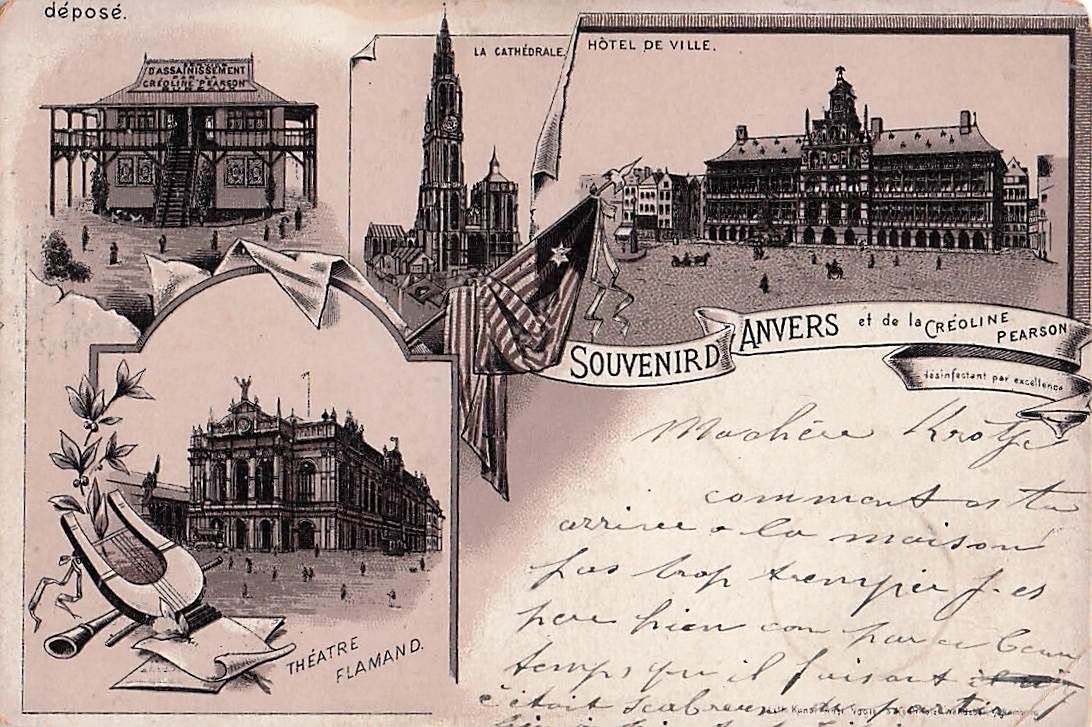 déposé.
D'ASSAINISSEMENT
PAR LA
CRÉOLINE-PEARSON
BUREAUX
LA CATHÉDRALE.
HÔTEL DE VILLE.
SOUVENIR D'ANVERS et de la CRÉOLINE
PEARSON
désinfectant par excellence
THÉATRE
FLAMAND.
Ma chère
comment as tu
arrivee a la maison
pas trop tremper j-es
pere bien con par ce beau
temps qu il faisait
c'était